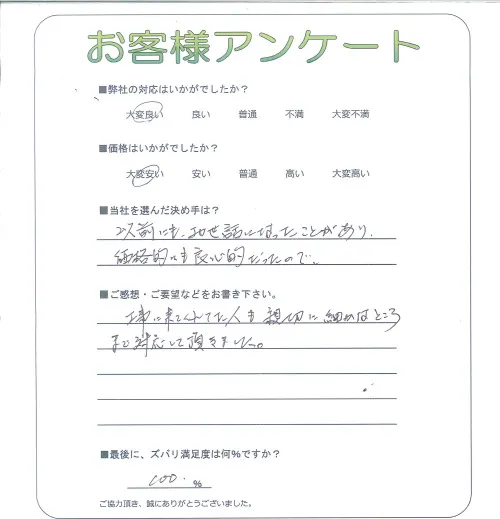 お客様アンケート
■弊社の対応はいかがでしたか？
大変良い 良い 普通 不満 大変不満
■価格はいかがでしたか？
大変安い 安い 普通 高い 大変高い
■当社を選んだ決め手は？
以前にも、お世話になったことがあり、
価格的にも良心的だったので、
■ご感想・ご要望などをお書き下さい。
工事に来てくれてた人も親切に細かなところ
まで対応して頂きました。
■最後に、ズバリ満足度は何％ですか？
100. ％
ご協力頂き、誠にありがとうございました。